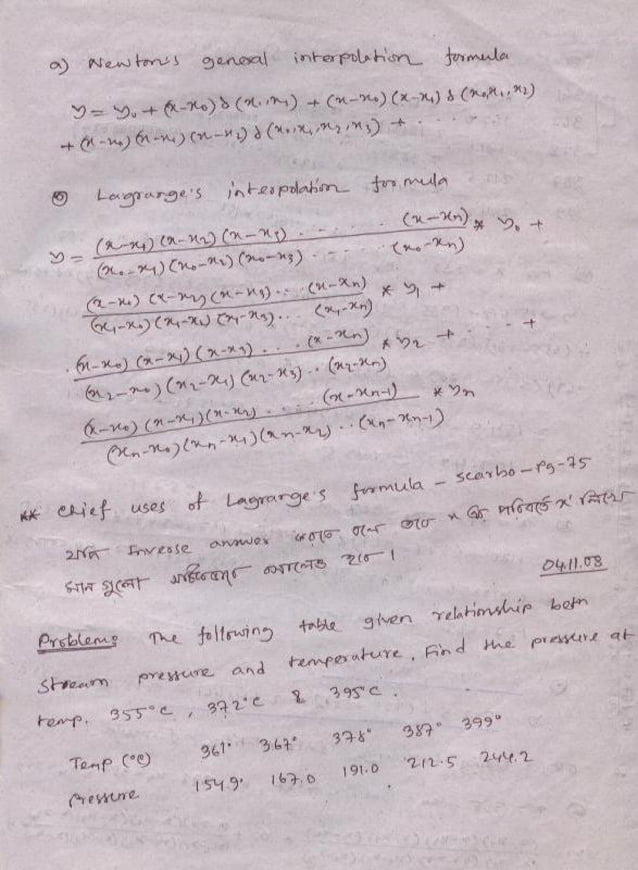 a) Newton's general interpolation formula
y = y₀ + (x-x₀) δ (x₀,x₁) + (x-x₀) (x-x₁) δ (x₀,x₁,x₂)
+ (x-x₀) (x-x₁) (x-x₂) δ (x₀,x₁,x₂,x₃) + . . . .
Lagrange's interpolation formula
y = (x-x₁) (x-x₂) (x-x₃) . . . . . . (x-xₙ) * y₀ +
(x₀-x₁) (x₀-x₂) (x₀-x₃) . . . . . (x₀-xₙ)
(x-x₀) (x-x₂) (x-x₃) . . . (x-xₙ) * y₁ +
(x₁-x₀) (x₁-x₂) (x₁-x₃) . . . (x₁-xₙ)
(x-x₀) (x-x₁) (x-x₃) . . . (x-xₙ) * y₂ + . . . . +
(x₂-x₀) (x₂-x₁) (x₂-x₃) . . (x₂-xₙ)
(x-x₀) (x-x₁) (x-x₂) . . . . (x-xₙ-1) * yₙ
(xₙ-x₀) (xₙ-x₁) (xₙ-x₂) . . (xₙ-xₙ-1)
** chief uses of Lagrange's formula - scarbo - Pg-75
যদি Inverse answer করতে বলে তবে x এর পরিবর্তে
মান গুলো হবে।
04.11.08
Problem: The following table given relationship betn
stream pressure and temperature, Find the pressure at
temp. 355°C, 372°C & 395°C.
Temp (°C) 361° 367° 378° 387° 399°
Pressure 154.9 167.0 191.0 212.5 244.2